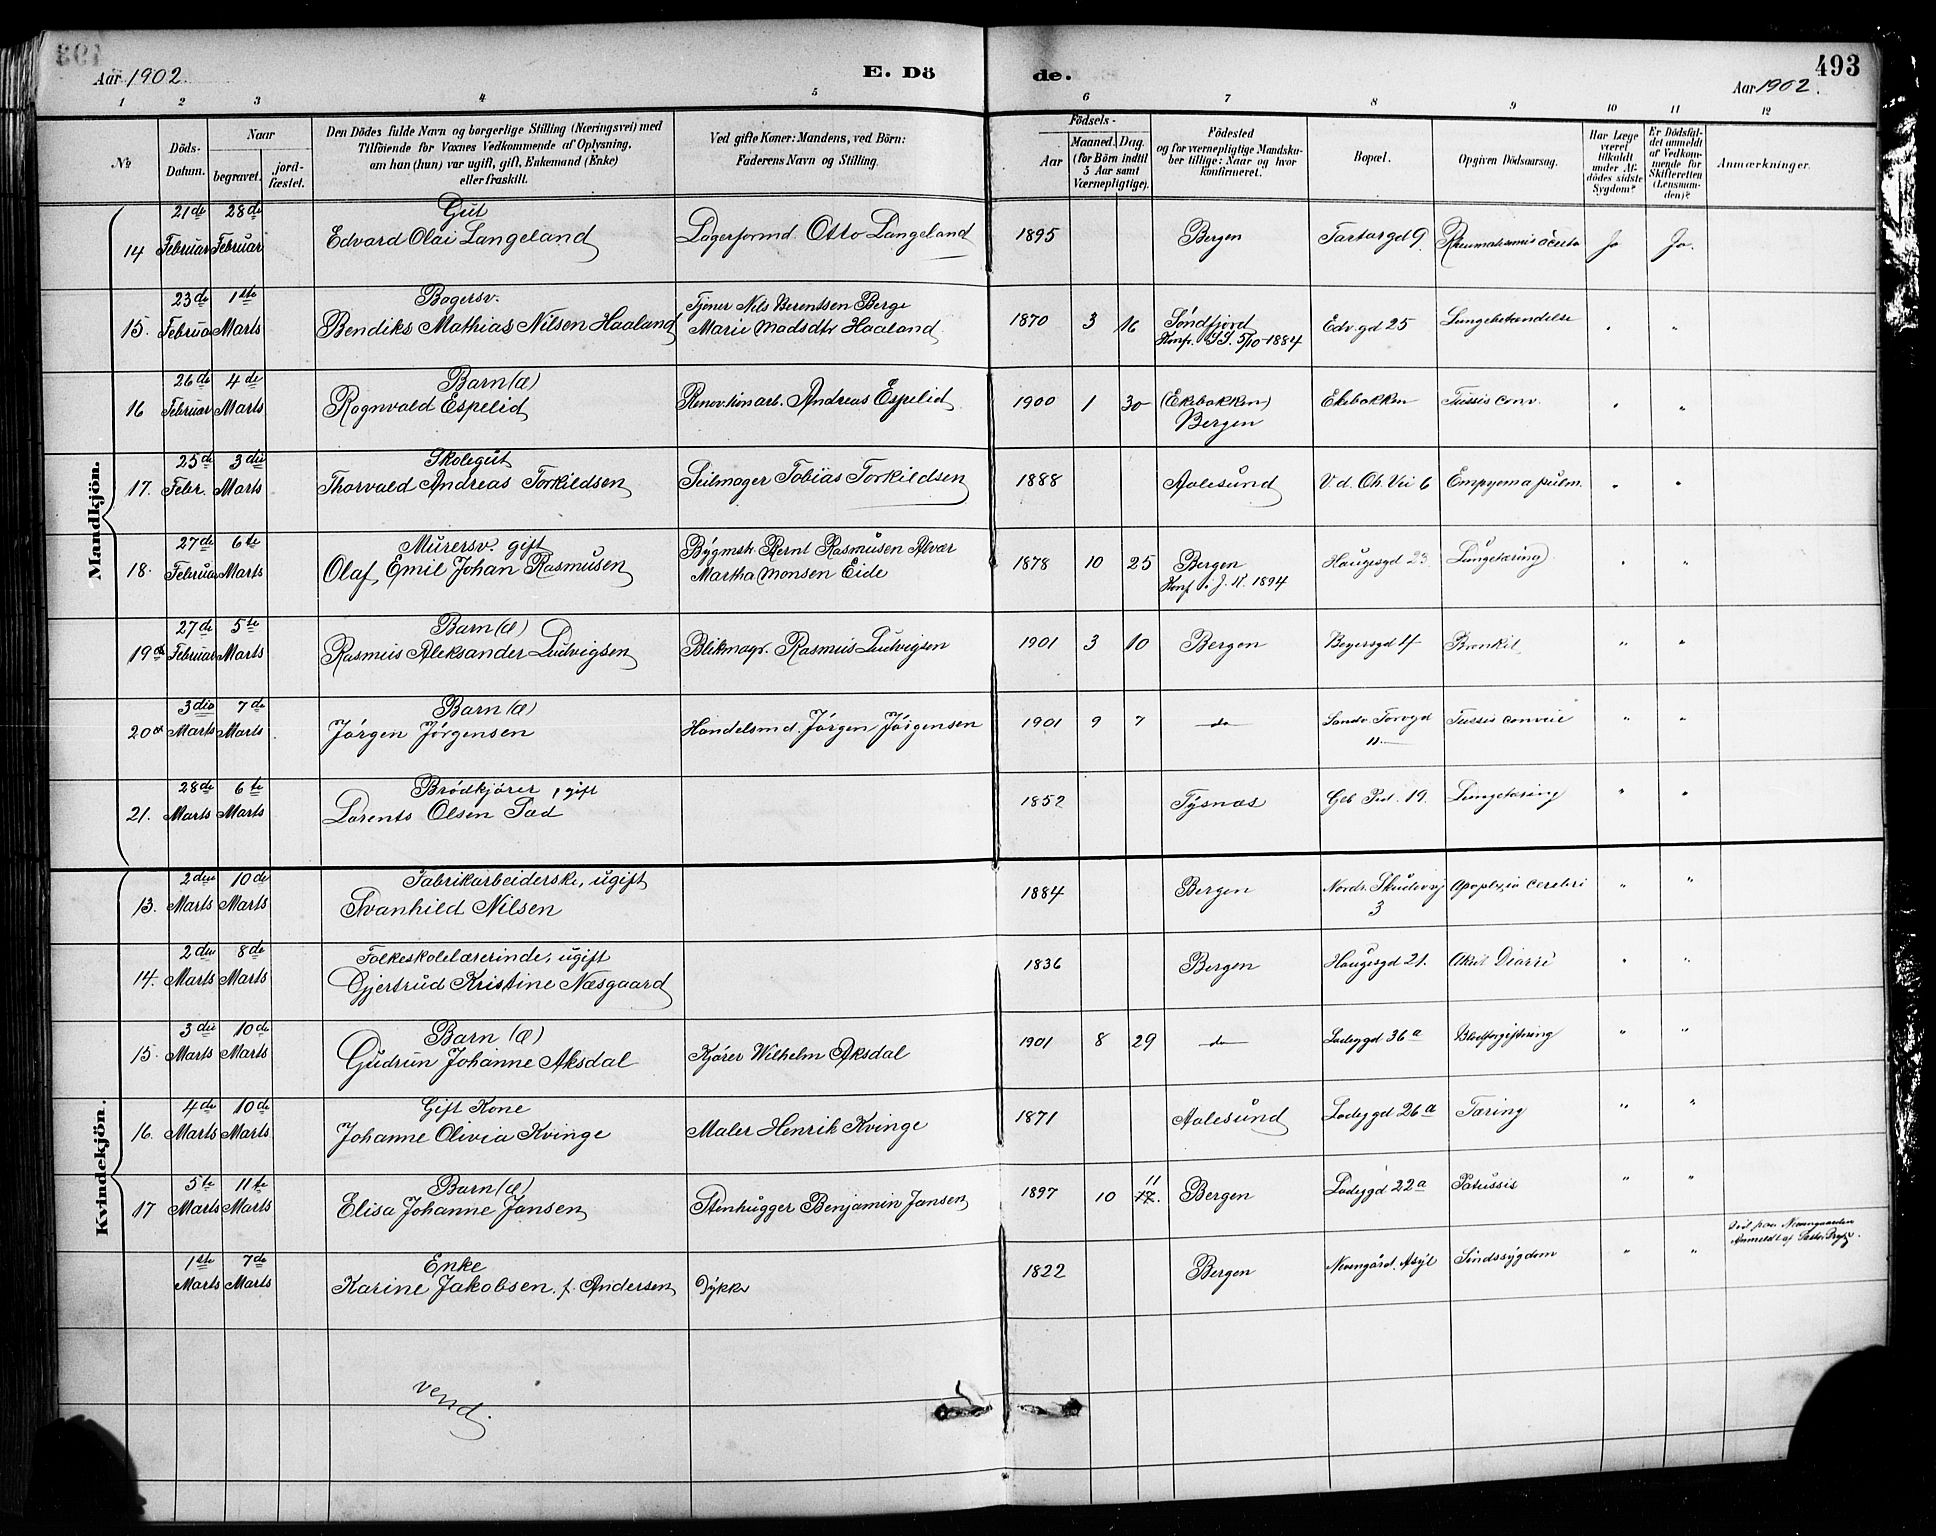 Aar 1902.
E. Dö
de.
493
Aar 1902.
1 2 3 4 5 6 7 8 9 10 11 12
No
Döds-Datum.
Naar
begravet.
jord-fæstet.
Den Dödes fulde Navn og borgerlige Stilling (Næringsvei) med
Tilföiende for Voxnes Vedkommende af Oplysning,
om han (hun) var ugift, gift, Enkemand (Enke)
eller fraskilt.
Ved gifte Koner: Mandens, ved Börn:
Faderens Navn og Stilling.
Födsels-
Aar
Maaned. Dag.
(for Börn indtil
5 Aar samt
Værnepligtige).
Födested
og for værnepligtige Mandska-
ber tillige: Naar og hvor
konfirmeret.
Bopæl.
Opgiven Dödsaarsag.
Har Læge
været
tilkaldt
under Af-
dödes sidste
Sygdom?
Er Dödsfal-
det anmeldt
af Vedkom-
mende for
Skifteretten
(Lensman-
den)?
Anmærkninger.
Mandkjön.
21de 28de Gut
14 Februar Februar Edvard Olai Langeland Lagerformd. Otto Langeland 1895 Bergen Tartargd 9 Rheumatismis Ja Ja.
23de 1ste Bagersv. Tjener Nils Berentsen Berge
15. Februa Marts Bendiks Mathias Nilsen Haaland Marie Madsdtr Haaland 1870 3 16 Söndfjord Edv. gd 25 Lungebetændelse " "
Konf. 5/10-1884
26de 4de Barn (æ)
16 Februar Marts Rognvald Espelid Renovktionarb. Andreas Espelid 1900 1 30 (Ekebakken) Ekebakken Tussis conv. " "
Bergen
25de 3die Skolegut
17. Febr. Marts Thorvald Andreas Torkildsen Seilmager Tobias Torkildsen 1888 Aalesund V. d. Ch. Vei 6 Empyema pulm. " "
27de 6te Murersv. gift Bygmstr. Bernt Rasmusen Alvær
18. Februar Marts Olaf Emil Johan Rasmusen Martha Monsen Eide 1878 10 25 Bergen Haugesgd 23. Lungetæring " "
Konf. i J. K. 1894
27de 5te Barn (æ)
19 Februar Marts Rasmus Aleksander Ludvigsen Blikmagr. Rasmus Ludvigsen 1901 3 10 Bergen Beyersgd 4 Bronkit " "
3die 7de Barn (æ)
20 Marts Marts Jörgen Jörgensen Handelsmd. Jörgen Jörgensen 1901 9 7 do Sandv. Torvgd Tussis convul " "
11
28de 6te Brödkjörer, gift
21. Marts Marts Lorents Olsen Sæd 1852 Tysnæs Geb Ped. 19. Lungetæring " "
Kvindekjön.
2den 10de Fabrikarbeiderske, ugift
13. Marts Marts Svanhild Nilsen 1884 Bergen Nordr. Skudevig Apoplexia cerebri " "
3
2den 8de Folkeskolelærerinde, ugift
14. Marts Marts Gjertrud Kristine Næsgaard 1836 Bergen Haugesgd 21. Akut Diarré " "
3die 10de Barn (æ)
15 Marts Marts Gudrun Johanne Aksdal Kjörer Wilhelm Aksdal 1901 8 29 do Ladeggd 36a Blodforgiftning " "
4de 10de Gift Kone
16. Marts Marts Johanne Olivia Kvinge Maler Henrik Kvinge 1871 Aalesund Ladeggd 26a Tæring " "
5te 11te Barn (æ) 11
17 Marts Marts Elisa Johanne Jansen Stenhugger Benjamin Jansen 1897 10 12. Bergen Ladeggd 22a Patussis " "
1ste 7de Enke
Marts Marts Karine Jakobsen f. Andersen Dykker 1822 Bergen Neevengård. Asyl Sindssygdom " "
Död paa Neevengaarden
Anmeldt af
vend.